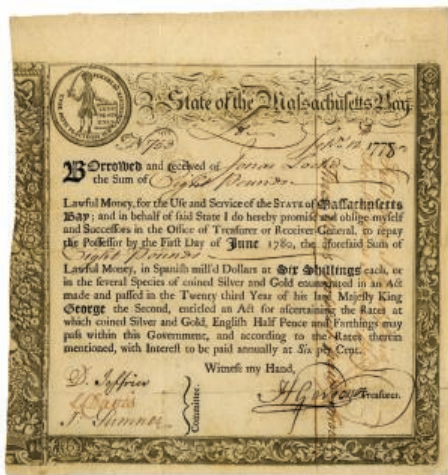 State of the Massachusetts Bay
No 753
1778
Borrowed and received of Jonas Locke
the Sum of Eight Pounds
Lawful Money, for the Use and Service of the STATE of Massachusetts
Bay; and in behalf of said State I do hereby promise and oblige myself
and Successors in the Office of Treasurer or Receiver-General, to repay
the Possessor by the First Day of June 1780, the aforesaid Sum of
Eight Pounds
Lawful Money, in Spanish mill'd Dollars at Six Shillings each, or
in the several Species of coined Silver and Gold enumerated in an Act
made and passed in the Twenty third Year of his late Majesty King
George the Second, entitled an Act for ascertaining the Rates at
which coined Silver and Gold, English Half Pence and Farthings may
pass within this Government, and according to the Rates therein
mentioned, with Interest to be paid annually at Six per Cent.
Witness my Hand,
D. Jeffries
Committee.
Treasurer.